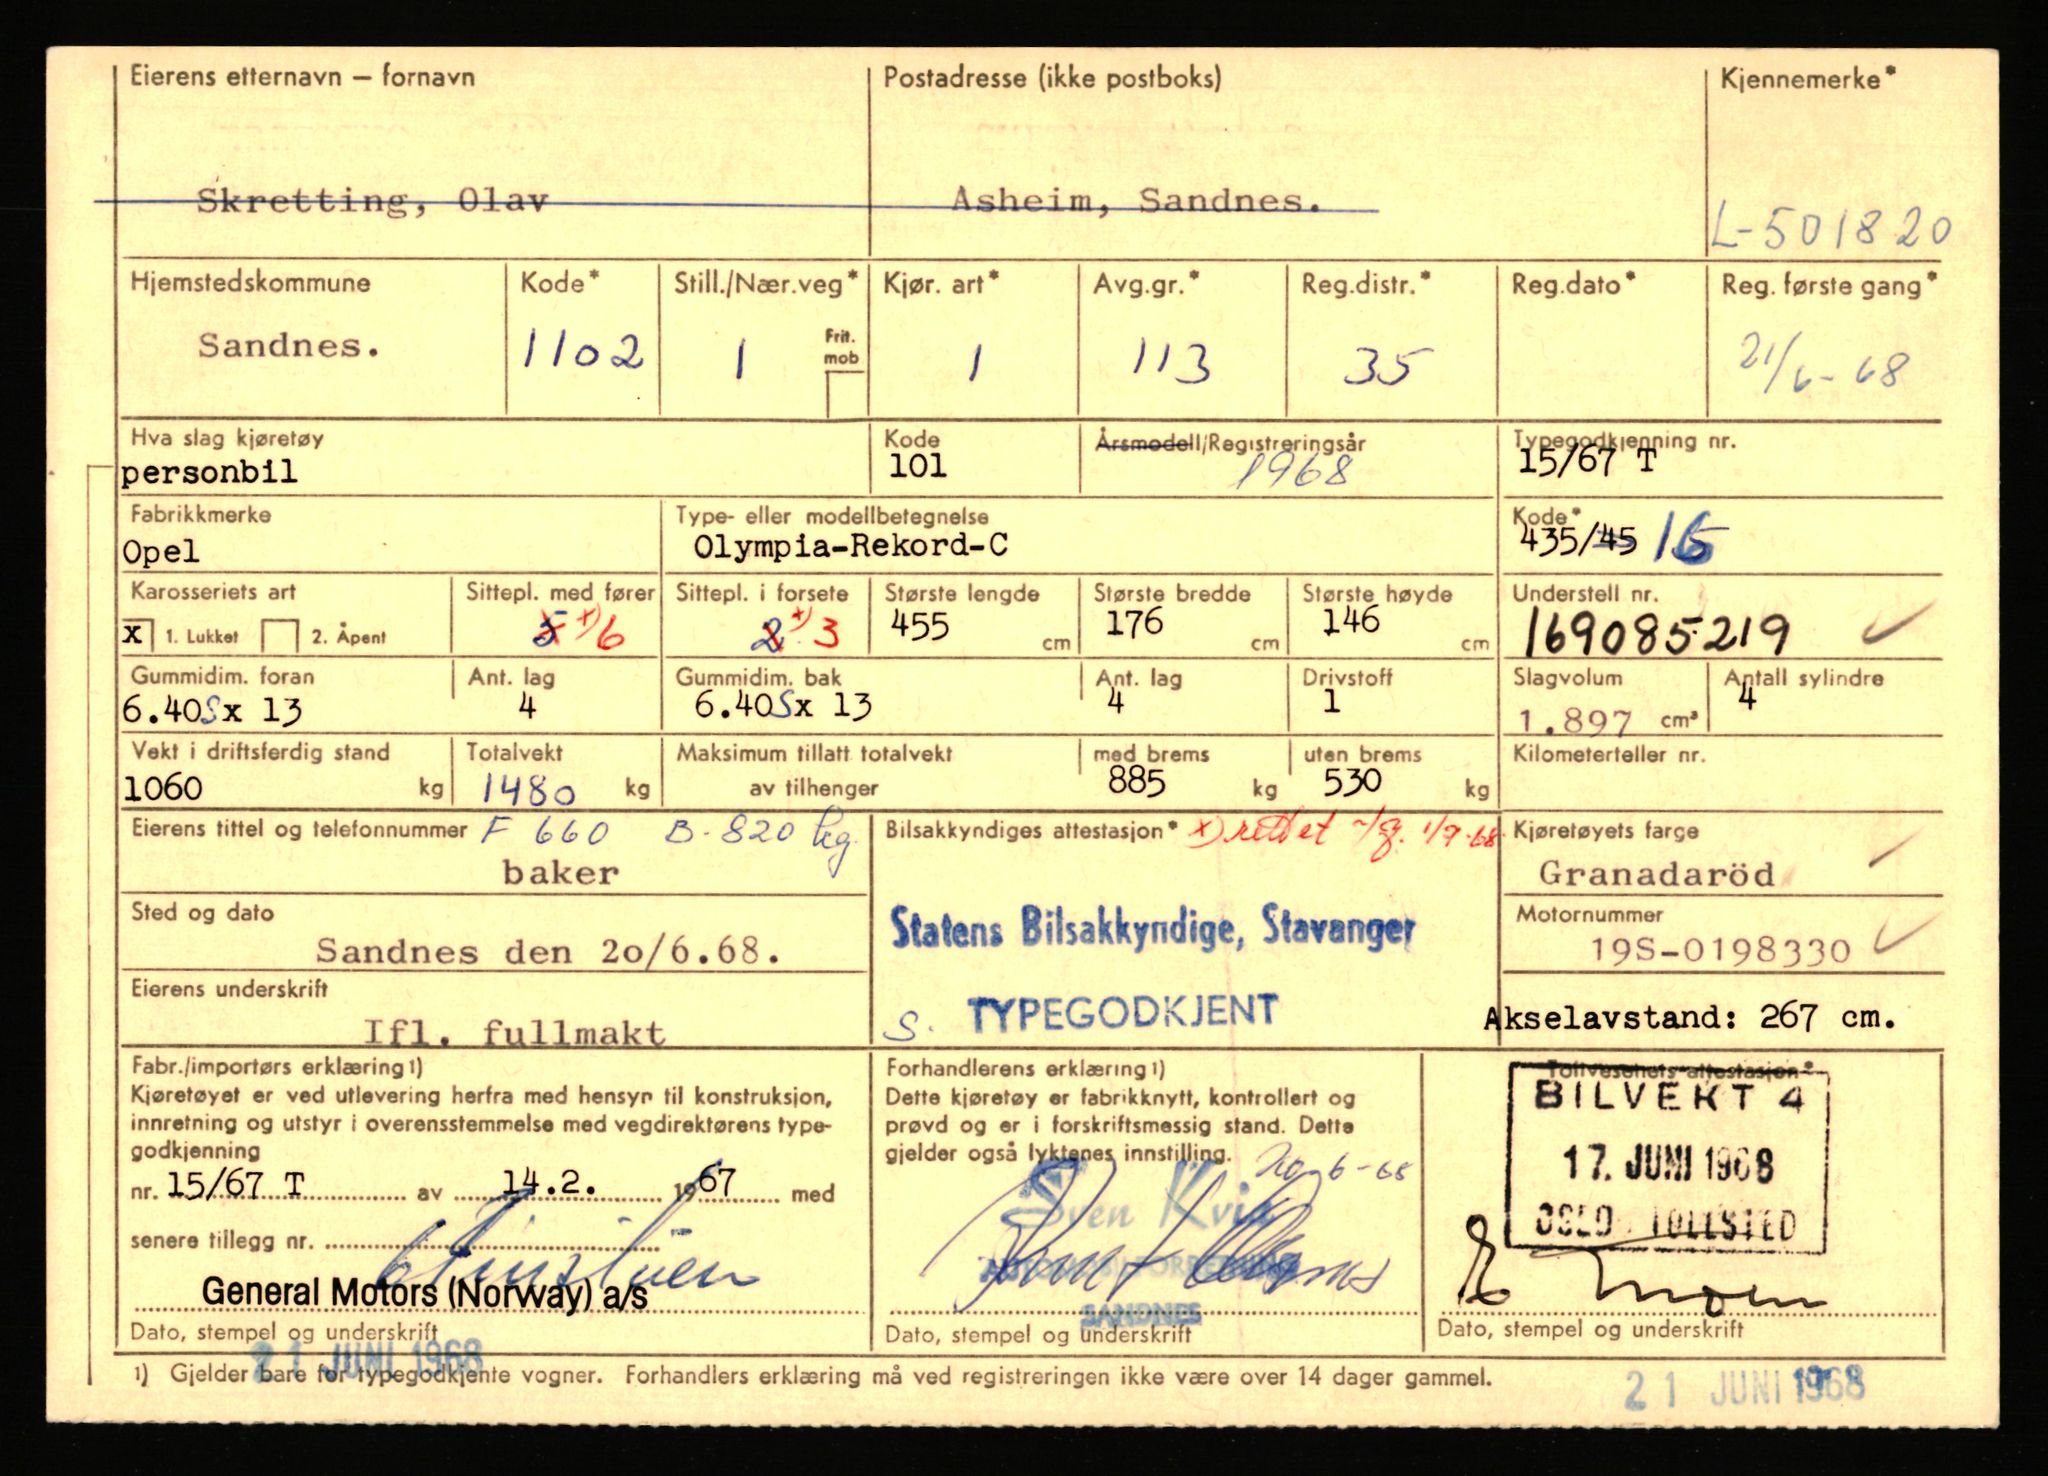 Eierens etternavn – fornavn
Postadresse (ikke postboks)
Kjennemerke*
Skretting, Olav
Asheim, Sandnes.
L-501820
Hjemstedskommune
Kode*
Still./Nær.veg*
Kjør. art*
Avg.gr.*
Reg.distr.*
Reg.dato*
Reg. første gang*
Sandnes.
1102
1
Frit. mob
1
113
35
21/6-68
Hva slag kjøretøy
Kode
Årsmodell/Registreringsår
Typegodkjenning nr.
personbil
101
1968
15/67 T
Fabrikkmerke
Type- eller modellbetegnelse
Kode*
Opel
Olympia-Rekord-C
435/45 16
Karosseriets art
Sittepl. med fører
Sittepl. i forsete
Største lengde
Største bredde
Største høyde
Understell nr.
x 1. Lukket 2. Åpent
5 x) 6
2 x) 3
455 cm
176 cm
146 cm
169085219
Gummidim. foran
Ant. lag
Gummidim. bak
Ant. lag
Drivstoff
Slagvolum
Antall sylindre
6.40S x 13
4
6.40S x 13
4
1
1.897 cm³
4
Vekt i driftsferdig stand
Totalvekt
Maksimum tillatt totalvekt
av tilhenger
med brems
uten brems
Kilometerteller nr.
1060 kg
1480 kg
885 kg
530 kg
Eierens tittel og telefonnummer F 660 B-820 kg.
baker
Bilsakkyndiges attestasjon* x) rettet 1/9-68
Kjøretøyets farge
Granadaröd
Sted og dato
Sandnes den 2o/6.68.
Statens Bilsakkyndige, Stavanger
Motornummer
19S-0198330
Eierens underskrift
Ifl. fullmakt
S. TYPEGODKJENT
Akselavstand: 267 cm.
Fabr./importørs erklæring 1)
Kjøretøyet er ved utlevering herfra med hensyn til konstruksjon,
innretning og utstyr i overensstemmelse med vegdirektørens type-
godkjenning
nr. 15/67 T av 14.2. 1967 med
senere tillegg nr.
General Motors (Norway) a/s
Dato, stempel og underskrift
21 JUNI 1968
Forhandlerens erklæring 1)
Dette kjøretøy er fabrikknytt, kontrollert og
prøvd og er i forskriftsmessig stand. Dette
gjelder også lyktenes innstilling.
20/6-68
Sven Kvia
AUTOMOBILFORRETNING
SANDNES
Dato, stempel og underskrift
Tollvesenets attestasjon*
BILVEKT 4
17. JUNI 1968
OSLO TOLLSTED
E Moen
Dato, stempel og underskrift
1) Gjelder bare for typegodkjente vogner. Forhandlers erklæring må ved registreringen ikke være over 14 dager gammel.
21 JUNI 1968